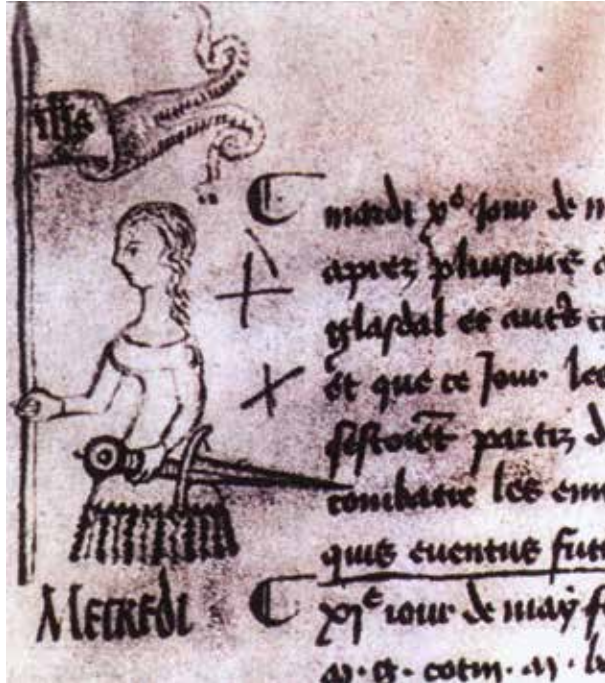 ihs
mardi xe jour de m
apres pluiseurs a
glasdal et autres
et que ce jour les
sestoient partiz d
combatre les enn
quis eventus futu
Mecredi xje jour de may f